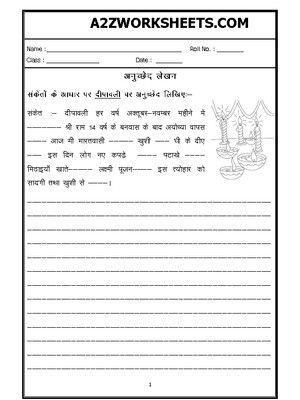 A2ZWORKSHEETS.COM
Name : Roll No. :
Class : Date :
अनुच्छेद लेखन
संकेतों के आधार पर दीपावली पर अनुच्छेद लिखिए:-
संकेत :- दीपावली हर वर्ष अक्तूबर-नवम्बर महीने मे
------- श्री राम 14 वर्ष के बनवास के बाद अयोध्या वापस
---- आज भी भारतवासी ----- खुशी --- घी के दीए
---- इस दिन लोग नए कपड़े ---- पटाखे ----
मिठाइयाँ खाते----- लक्ष्मी पूजन----- इस त्योहार को
सादगी तथा खुशी से ----।
1